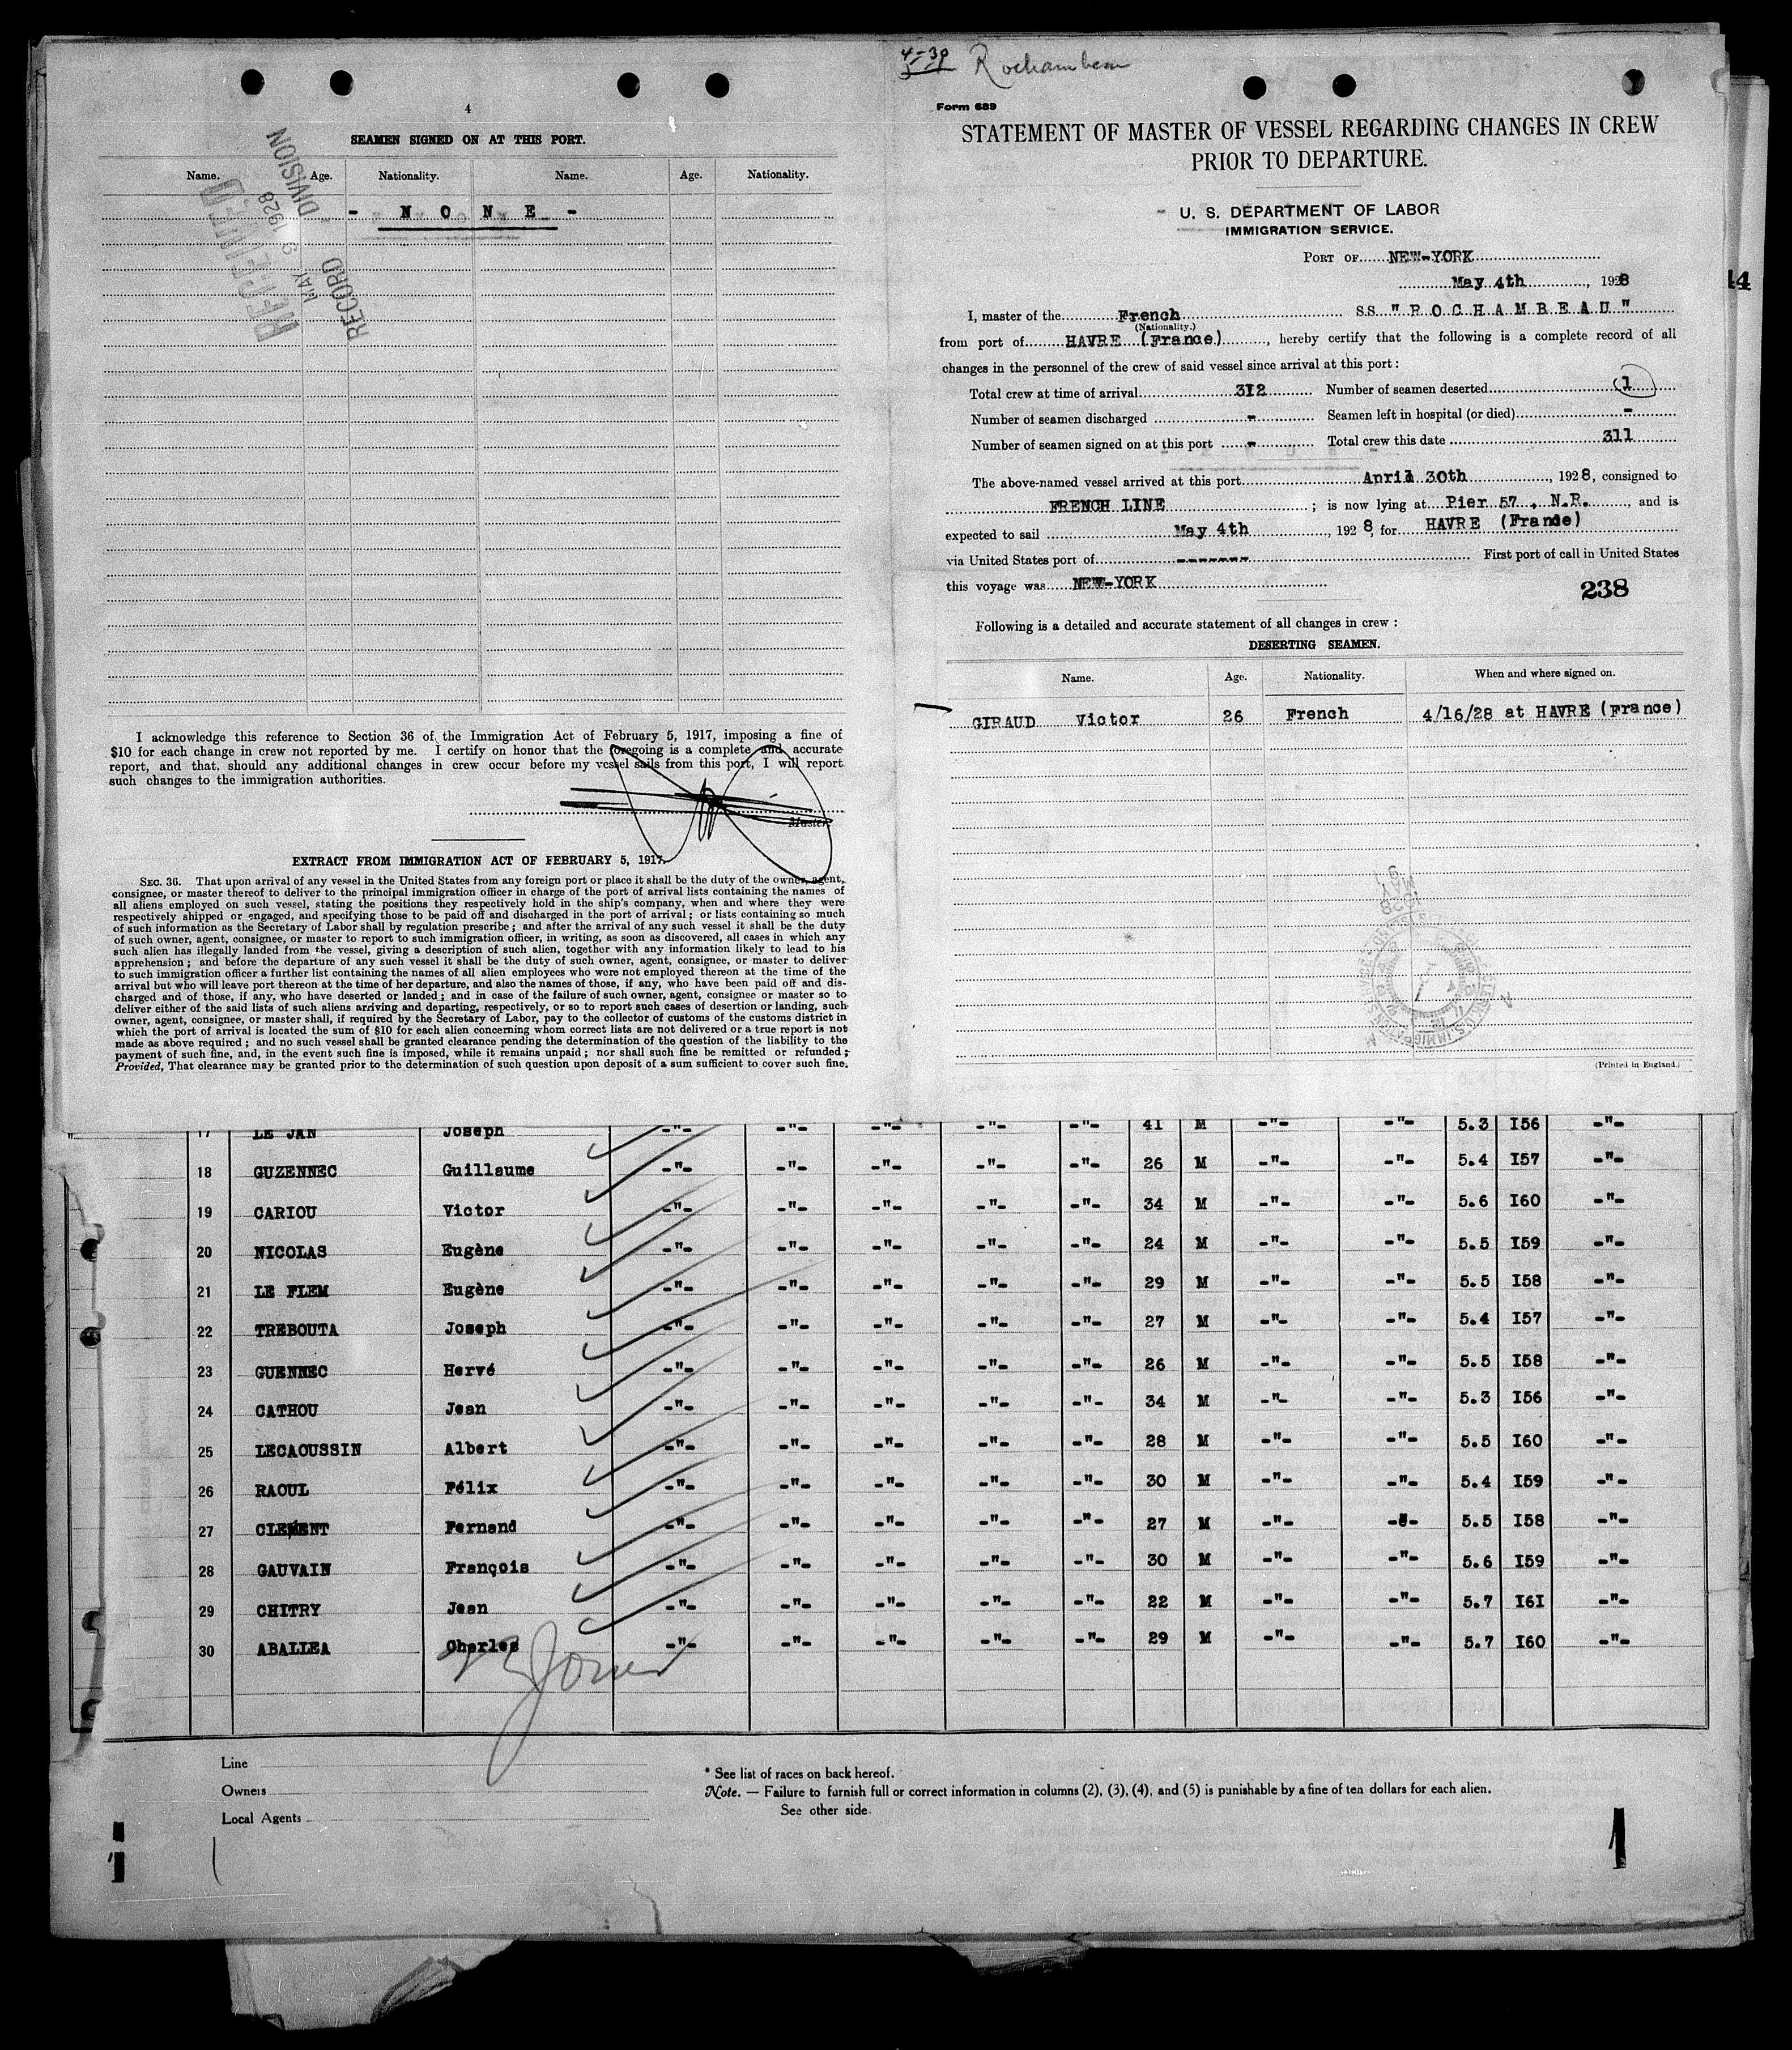 4
SEAMEN SIGNED ON AT THIS PORT.
Name. Age. Nationality. Name. Age. Nationality.
- N O N E -
RECORD DIVISION
MAY 9 1928
I acknowledge this reference to Section 36 of the Immigration Act of February 5, 1917, imposing a fine of
$10 for each change in crew not reported by me. I certify on honor that the foregoing is a complete and accurate
report, and that, should any additional changes in crew occur before my vessel sails from this port, I will report
such changes to the immigration authorities.
Master.
EXTRACT FROM IMMIGRATION ACT OF FEBRUARY 5, 1917.
SEC. 36. That upon arrival of any vessel in the United States from any foreign port or place it shall be the duty of the owner, agent,
consignee, or master thereof to deliver to the principal immigration officer in charge of the port of arrival lists containing the names of
all aliens employed on such vessel, stating the positions they respectively hold in the ship's company, when and where they were
respectively shipped or engaged, and specifying those to be paid off and discharged in the port of arrival; or lists containing so much
of such information as the Secretary of Labor shall by regulation prescribe; and after the arrival of any such vessel it shall be the duty
of such owner, agent, consignee, or master to report to such immigration officer, in writing, as soon as discovered, all cases in which any
such alien has illegally landed from the vessel, giving a description of such alien, together with any information likely to lead to his
apprehension; and before the departure of any such vessel it shall be the duty of such owner, agent, consignee, or master to deliver
to such immigration officer a further list containing the names of all alien employees who were not employed thereon at the time of the
arrival but who will leave port thereon at the time of her departure, and also the names of those, if any, who have been paid off and dis-
charged and of those, if any, who have deserted or landed; and in case of the failure of such owner, agent, consignee or master so to
deliver either of the said lists of such aliens arriving and departing, respectively, or so to report such cases of desertion or landing, such
owner, agent, consignee, or master shall, if required by the Secretary of Labor, pay to the collector of customs of the customs district in
which the port of arrival is located the sum of $10 for each alien concerning whom correct lists are not delivered or a true report is not
made as above required; and no such vessel shall be granted clearance pending the determination of the question of the liability to the
payment of such fine, and, in the event such fine is imposed, while it remains unpaid; nor shall such fine be remitted or refunded;
Provided, That clearance may be granted prior to the determination of such question upon deposit of a sum sufficient to cover such fine.
4-30 Rochambeau
Form 689
STATEMENT OF MASTER OF VESSEL REGARDING CHANGES IN CREW
PRIOR TO DEPARTURE.
U. S. DEPARTMENT OF LABOR
IMMIGRATION SERVICE.
PORT OF NEW-YORK
May 4th, 1928
44
I, master of the French SS "R O C H A M B E A U"
(Nationality.)
from port of HAVRE (France), hereby certify that the following is a complete record of all
changes in the personnel of the crew of said vessel since arrival at this port:
Total crew at time of arrival 3I2 Number of seamen deserted 1
Number of seamen discharged - Seamen left in hospital (or died) -
Number of seamen signed on at this port - Total crew this date 311
The above-named vessel arrived at this port April 30th, 1928, consigned to
FRENCH LINE; is now lying at Pier 57, N.R., and is
expected to sail May 4th, 1928, for HAVRE (France)
via United States port of ------- First port of call in United States
this voyage was NEW-YORK
238
Following is a detailed and accurate statement of all changes in crew:
DESERTING SEAMEN.
Name. Age. Nationality. When and where signed on.
GIRAUD Victor 26 French 4/16/28 at HAVRE (France)
(Printed in England.)
17 LE JAN Joseph -"- -"- -"- -"- -"- 41 M -"- -"- 5.3 I56 -"-
18 GUZENNEC Guillaume -"- -"- -"- -"- -"- 26 M -"- -"- 5.4 I57 -"-
19 CARIOU Victor -"- -"- -"- -"- -"- 34 M -"- -"- 5.6 I60 -"-
20 NICOLAS Eugène -"- -"- -"- -"- -"- 24 M -"- -"- 5.5 I59 -"-
21 LE FLEM Eugène -"- -"- -"- -"- -"- 29 M -"- -"- 5.5 I58 -"-
22 TREBOUTA Joseph -"- -"- -"- -"- -"- 27 M -"- -"- 5.4 I57 -"-
23 GUENNEC Hervé -"- -"- -"- -"- -"- 26 M -"- -"- 5.5 I58 -"-
24 CATHOU Jean -"- -"- -"- -"- -"- 34 M -"- -"- 5.3 I56 -"-
25 LECAOUSSIN Albert -"- -"- -"- -"- -"- 28 M -"- -"- 5.5 I60 -"-
26 RAOUL Félix -"- -"- -"- -"- -"- 30 M -"- -"- 5.4 I59 -"-
27 CLEMENT Fernand -"- -"- -"- -"- -"- 27 M -"- -"- 5.5 I58 -"-
28 GAUVAIN François -"- -"- -"- -"- -"- 30 M -"- -"- 5.6 I59 -"-
29 CHITRY Jean -"- -"- -"- -"- -"- 22 M -"- -"- 5.7 I6I -"-
30 ABALLEA Charles -"- -"- -"- -"- -"- 29 M -"- -"- 5.7 I60 -"-
Line
Owners
Local Agents
* See list of races on back hereof.
Note. — Failure to furnish full or correct information in columns (2), (3), (4), and (5) is punishable by a fine of ten dollars for each alien.
See other side.
1